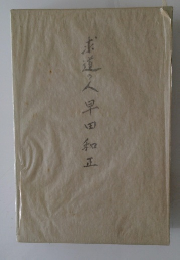 求道の人 早田和正